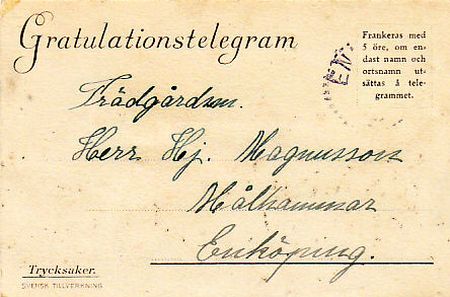 Gratulationstelegram
Frankeras med
5 öre, om en-
dast namn och
ortsnamn ut-
sättas å tele-
grammet.
Trädgårdsm.
Herr Hj. Magnusson
Målhammar
Enköping.
Trycksaker.
SVENSK TILLVERKNING